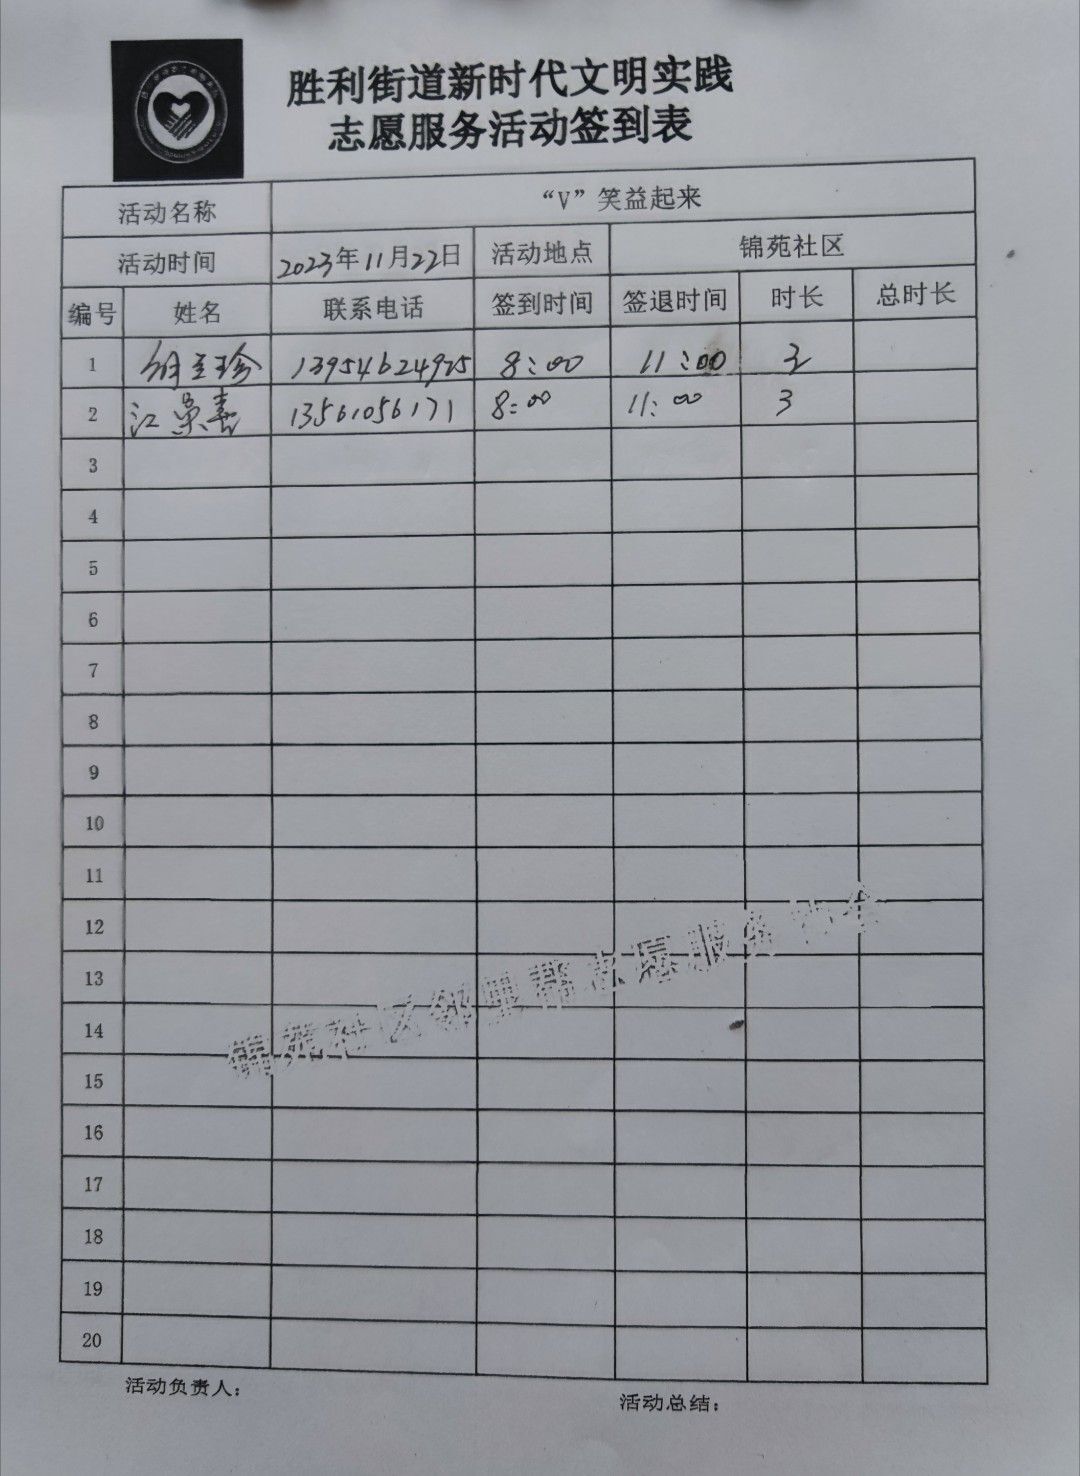 胜利街道新时代文明实践
志愿服务活动签到表
活动名称 “V”笑益起来
活动时间 2023年11月22日 活动地点 锦苑社区
编号 姓名 联系电话 签到时间 签退时间 时长 总时长
1 13954624925 8:00 11:00 3
2 江 13561056171 8:00 11:00 3
3
4
5
6
7
8
9
10
11
12
13
14
15
16
17
18
19
20
锦苑社区邻里帮志愿服务协会
活动负责人: 活动总结: